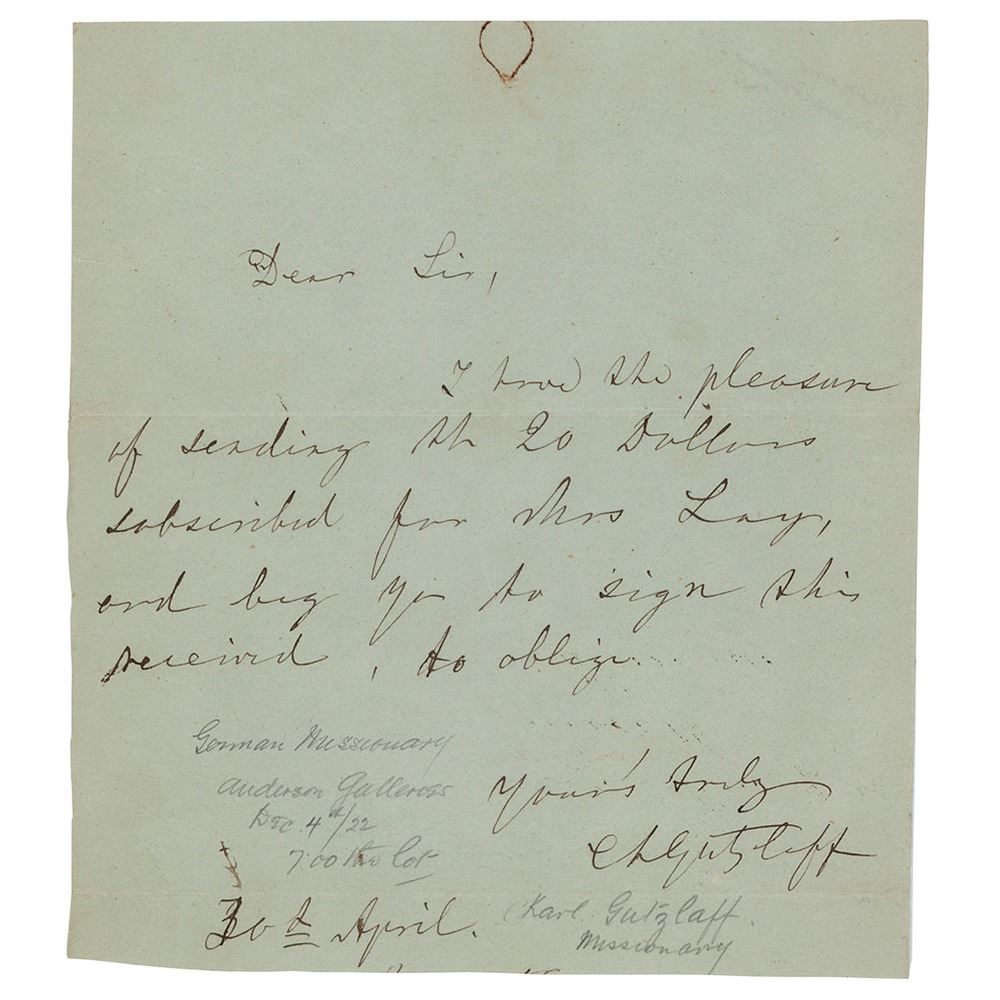 Dear Sir,
I have the pleasure
of sending th 20 Dollars
subscribed for Mrs Lay,
and beg you to sign this
received, to oblige
German Missionary
Anderson Galleries
Dec. 4th/22
7.00 the lot
Your's truly
ChGutzlaff
30th April.
Karl Gutzlaff.
Missionary